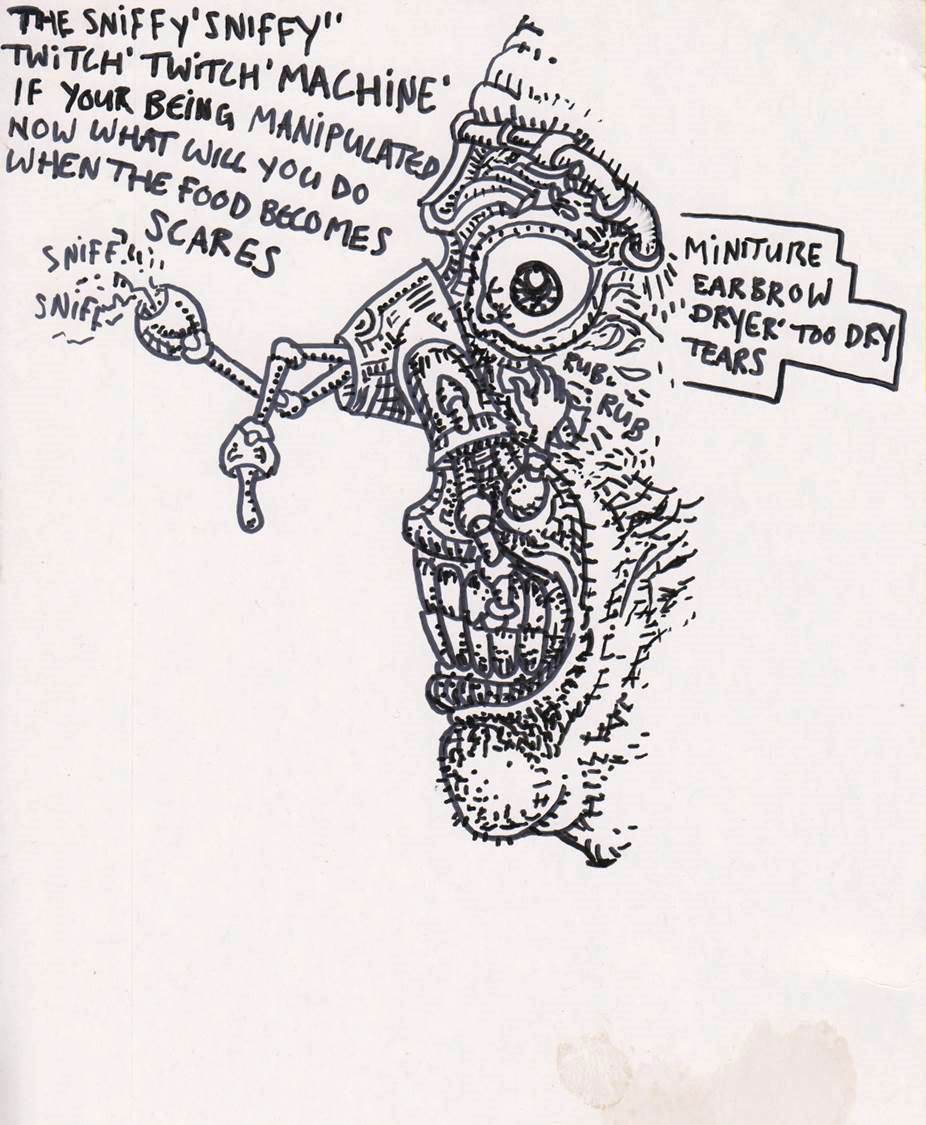 THE SNiFFY'SNiFFY''
TWiTCH' TWiTCH' MACHiNE'
iF YOUR BEiNG MANiPULATED
NOW WHAT WiLL YOU DO
WHEN THE FOOD BECOMES
SCARES
SNiFF
SNiFF
MiNiTURE
EARBROW
DRYER' TOO DRY
TEARS
RUB.
RUB